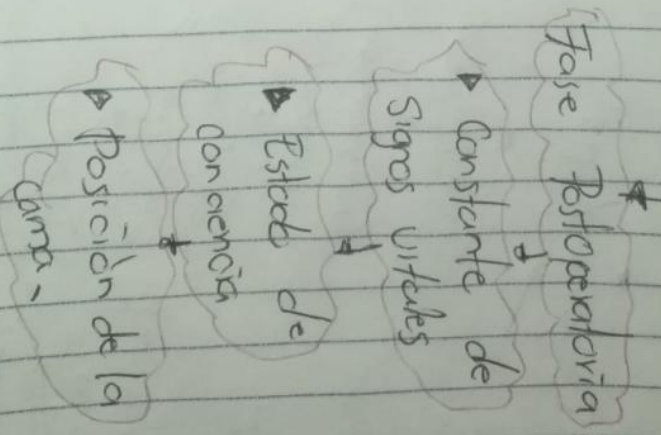 Fase Postoperatoria
Constante de
Signos vitales
Estado de
conciencia
Posición de la
cama,